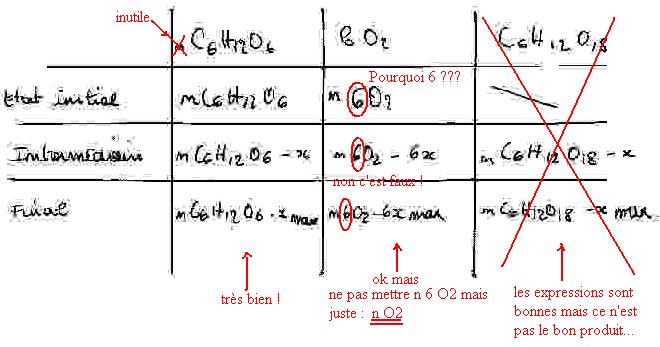 inutile
n C6H12O6 6 O2 C6H12O18
Pourquoi 6 ???
Etat initial nC6H12O6 n 6O2
Intermédiaire nC6H12O6 - x n 6O2 - 6x n C6H12O18 - x
non c'est faux !
Final nC6H12O6 - x max n6O2 - 6x max nC6H12O18 - x max
très bien !
ok mais
ne pas mettre n 6 O2 mais
juste : n O2
les expressions sont
bonnes mais ce n'est
pas le bon produit...